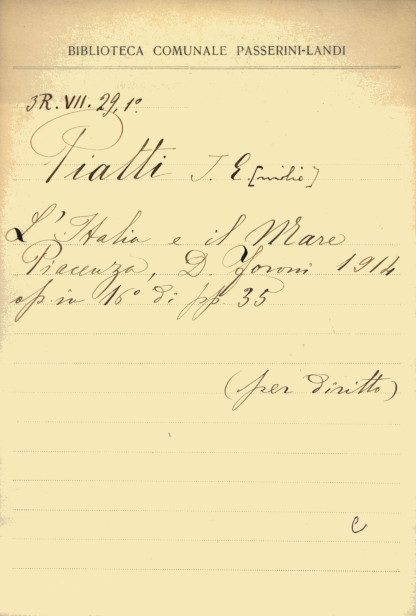 BIBLIOTECA COMUNALE PASSERINI-LANDI
3R. VII. 29, 1º
Piatti T. E. [milio]
L'Italia e il Mare
Piacenza, D. Foroni 1914
op. in 16º di pp. 35
(per diritto)
C